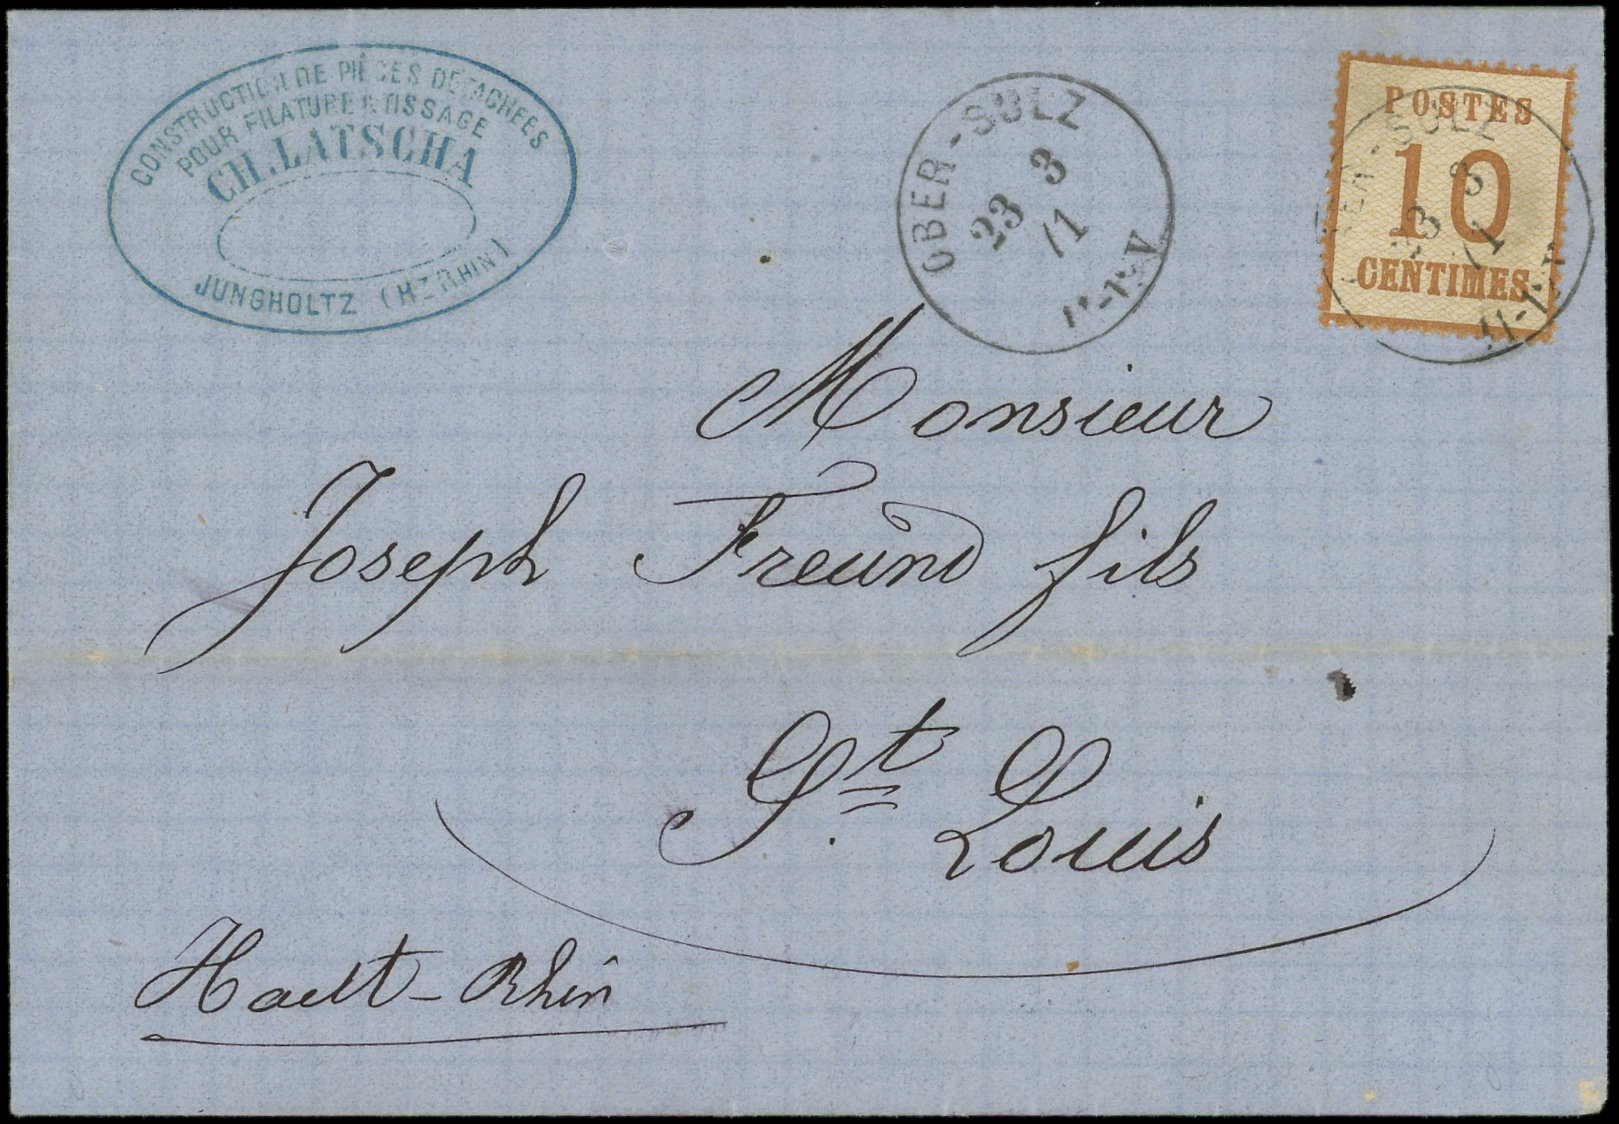 CONSTRUCTION DE PIÈCES DETACHÉES
POUR FILATURE & TISSAGE
CH. LATSCHA
JUNGHOLTZ (HT RHIN)
OBER-SULZ
23 3
71
11-1 V
POSTES
10
CENTIMES
OBER-SULZ
23 3
71
11-1 V
Monsieur
Joseph Freund fils
St. Louis
Haut-Rhin